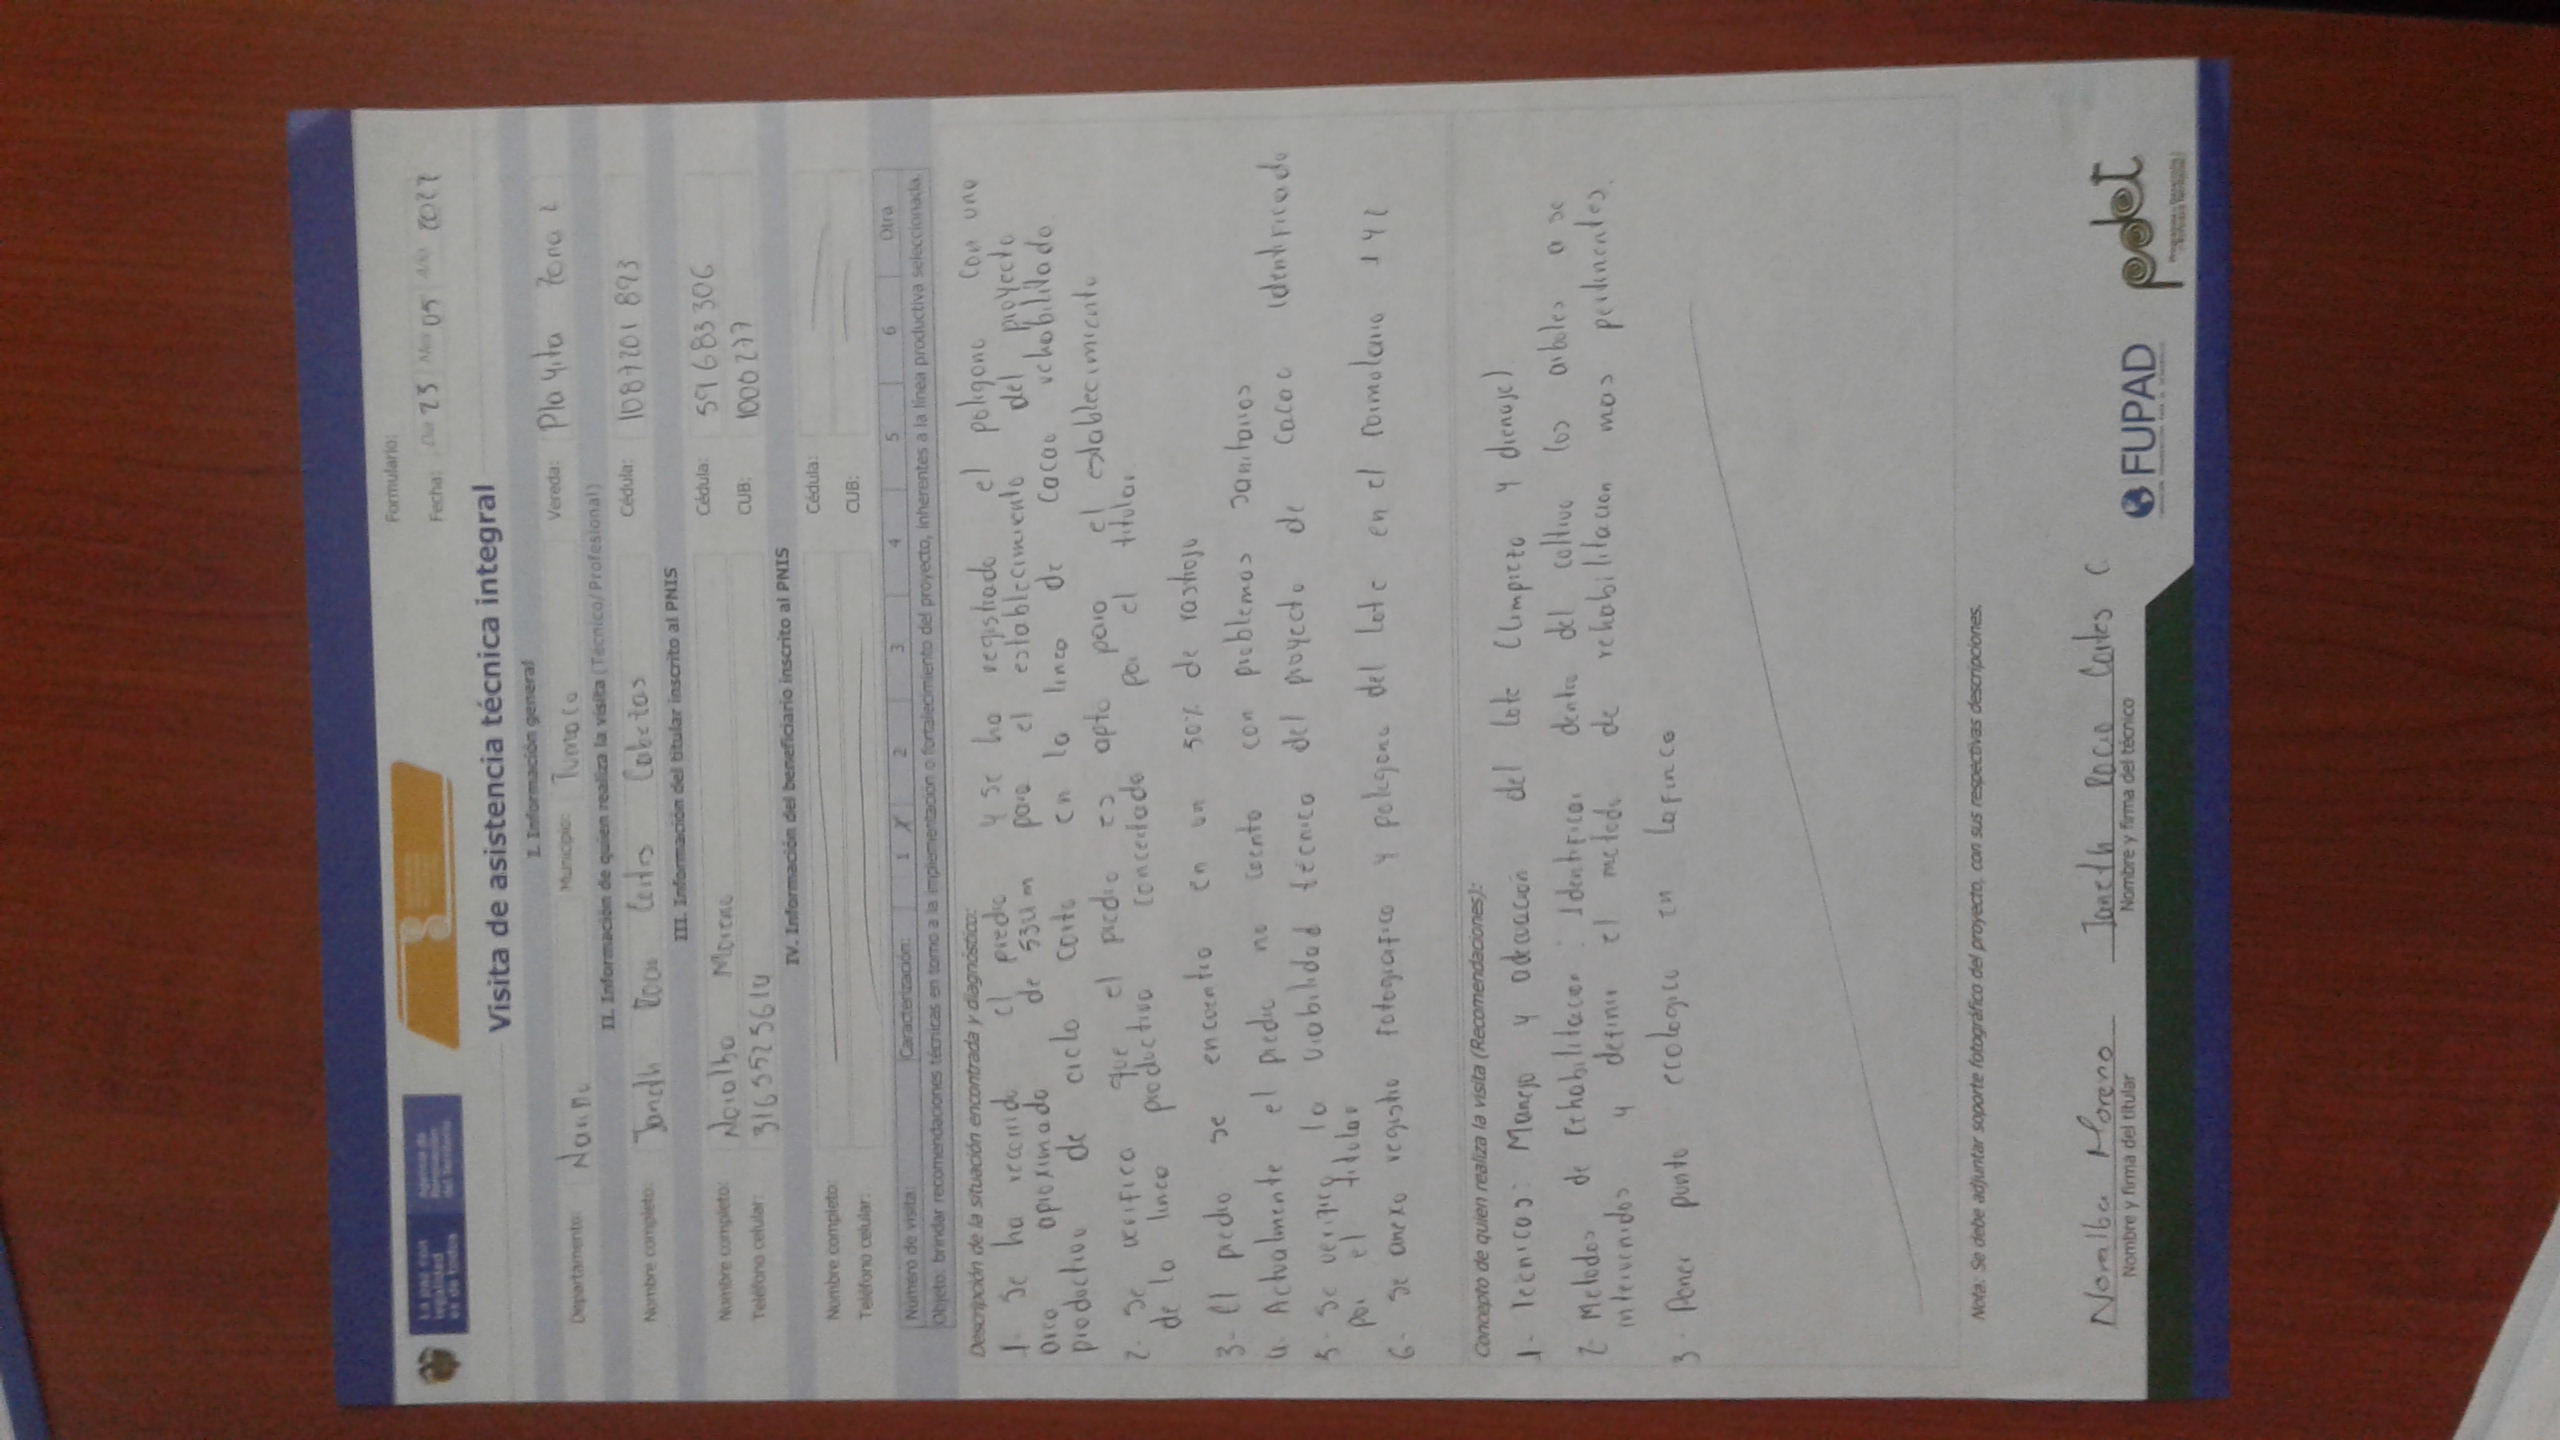 La paz con
legalidad
es de todos
Agencia de
Renovación
del Territorio
Formulario:
Fecha: Día 23 Mes 05 Año 2022
Visita de asistencia técnica integral
I. Información general
Departamento: Nariño Municipio: Tumaco Vereda: Playita Zona 2
II. Información de quien realiza la visita (Técnico/Profesional)
Nombre completo: Janeth Rocio Cortes Cabezas Cédula: 1087201893
III. Información del titular inscrito al PNIS
Nombre completo: Noralba Moreno Cédula: 59683306
Teléfono celular: 3163525614 CUB: 1000277
IV. Información del beneficiario inscrito al PNIS
Nombre completo: Cédula:
Teléfono celular: CUB:
Número de visita: Caracterización: 1 X 2 3 4 5 6 Otra
Objeto: brindar recomendaciones técnicas en torno a la implementación o fortalecimiento del proyecto, inherentes a la línea productiva seleccionada.
Descripción de la situación encontrada y diagnóstico:
1- Se ha recorrido el predio y se ha registrado el poligono con una
area aproximado de 534 m para el establecimiento del proyecto
productivo de ciclo corto en la linea de cacao rehabilitado
2- Se verifico que el predio es apto para el establecimiento
de la linea productiva concertada por el titular
3- El predio se encuentra en un 50% de rastrojo
4- Actualmente el predio no cuenta con problemas sanitarios
5- Se verifico la viabilidad técnica del proyecto de cacao identificado
por el titular
6- Se anexo registro fotografico y poligono del lote en el formulario 1 y 2
Concepto de quien realiza la visita (Recomendaciones):
1- Tecnicos: Manejo y adecuación del lote (Limpieza y drenaje)
2- Metodos de Rehabilitacion: Identificar dentro del cultivo los arboles a se
intervenidos y definir el metodo de rehabilitacion mas pertinentes.
3. Poner punto ecologico en lafinca
Nota: Se debe adjuntar soporte fotográfico del proyecto, con sus respectivas descripciones.
Noralba Moreno Janeth Rocio Cortes C.
Nombre y firma del titular Nombre y firma del técnico
FUPAD
pdet